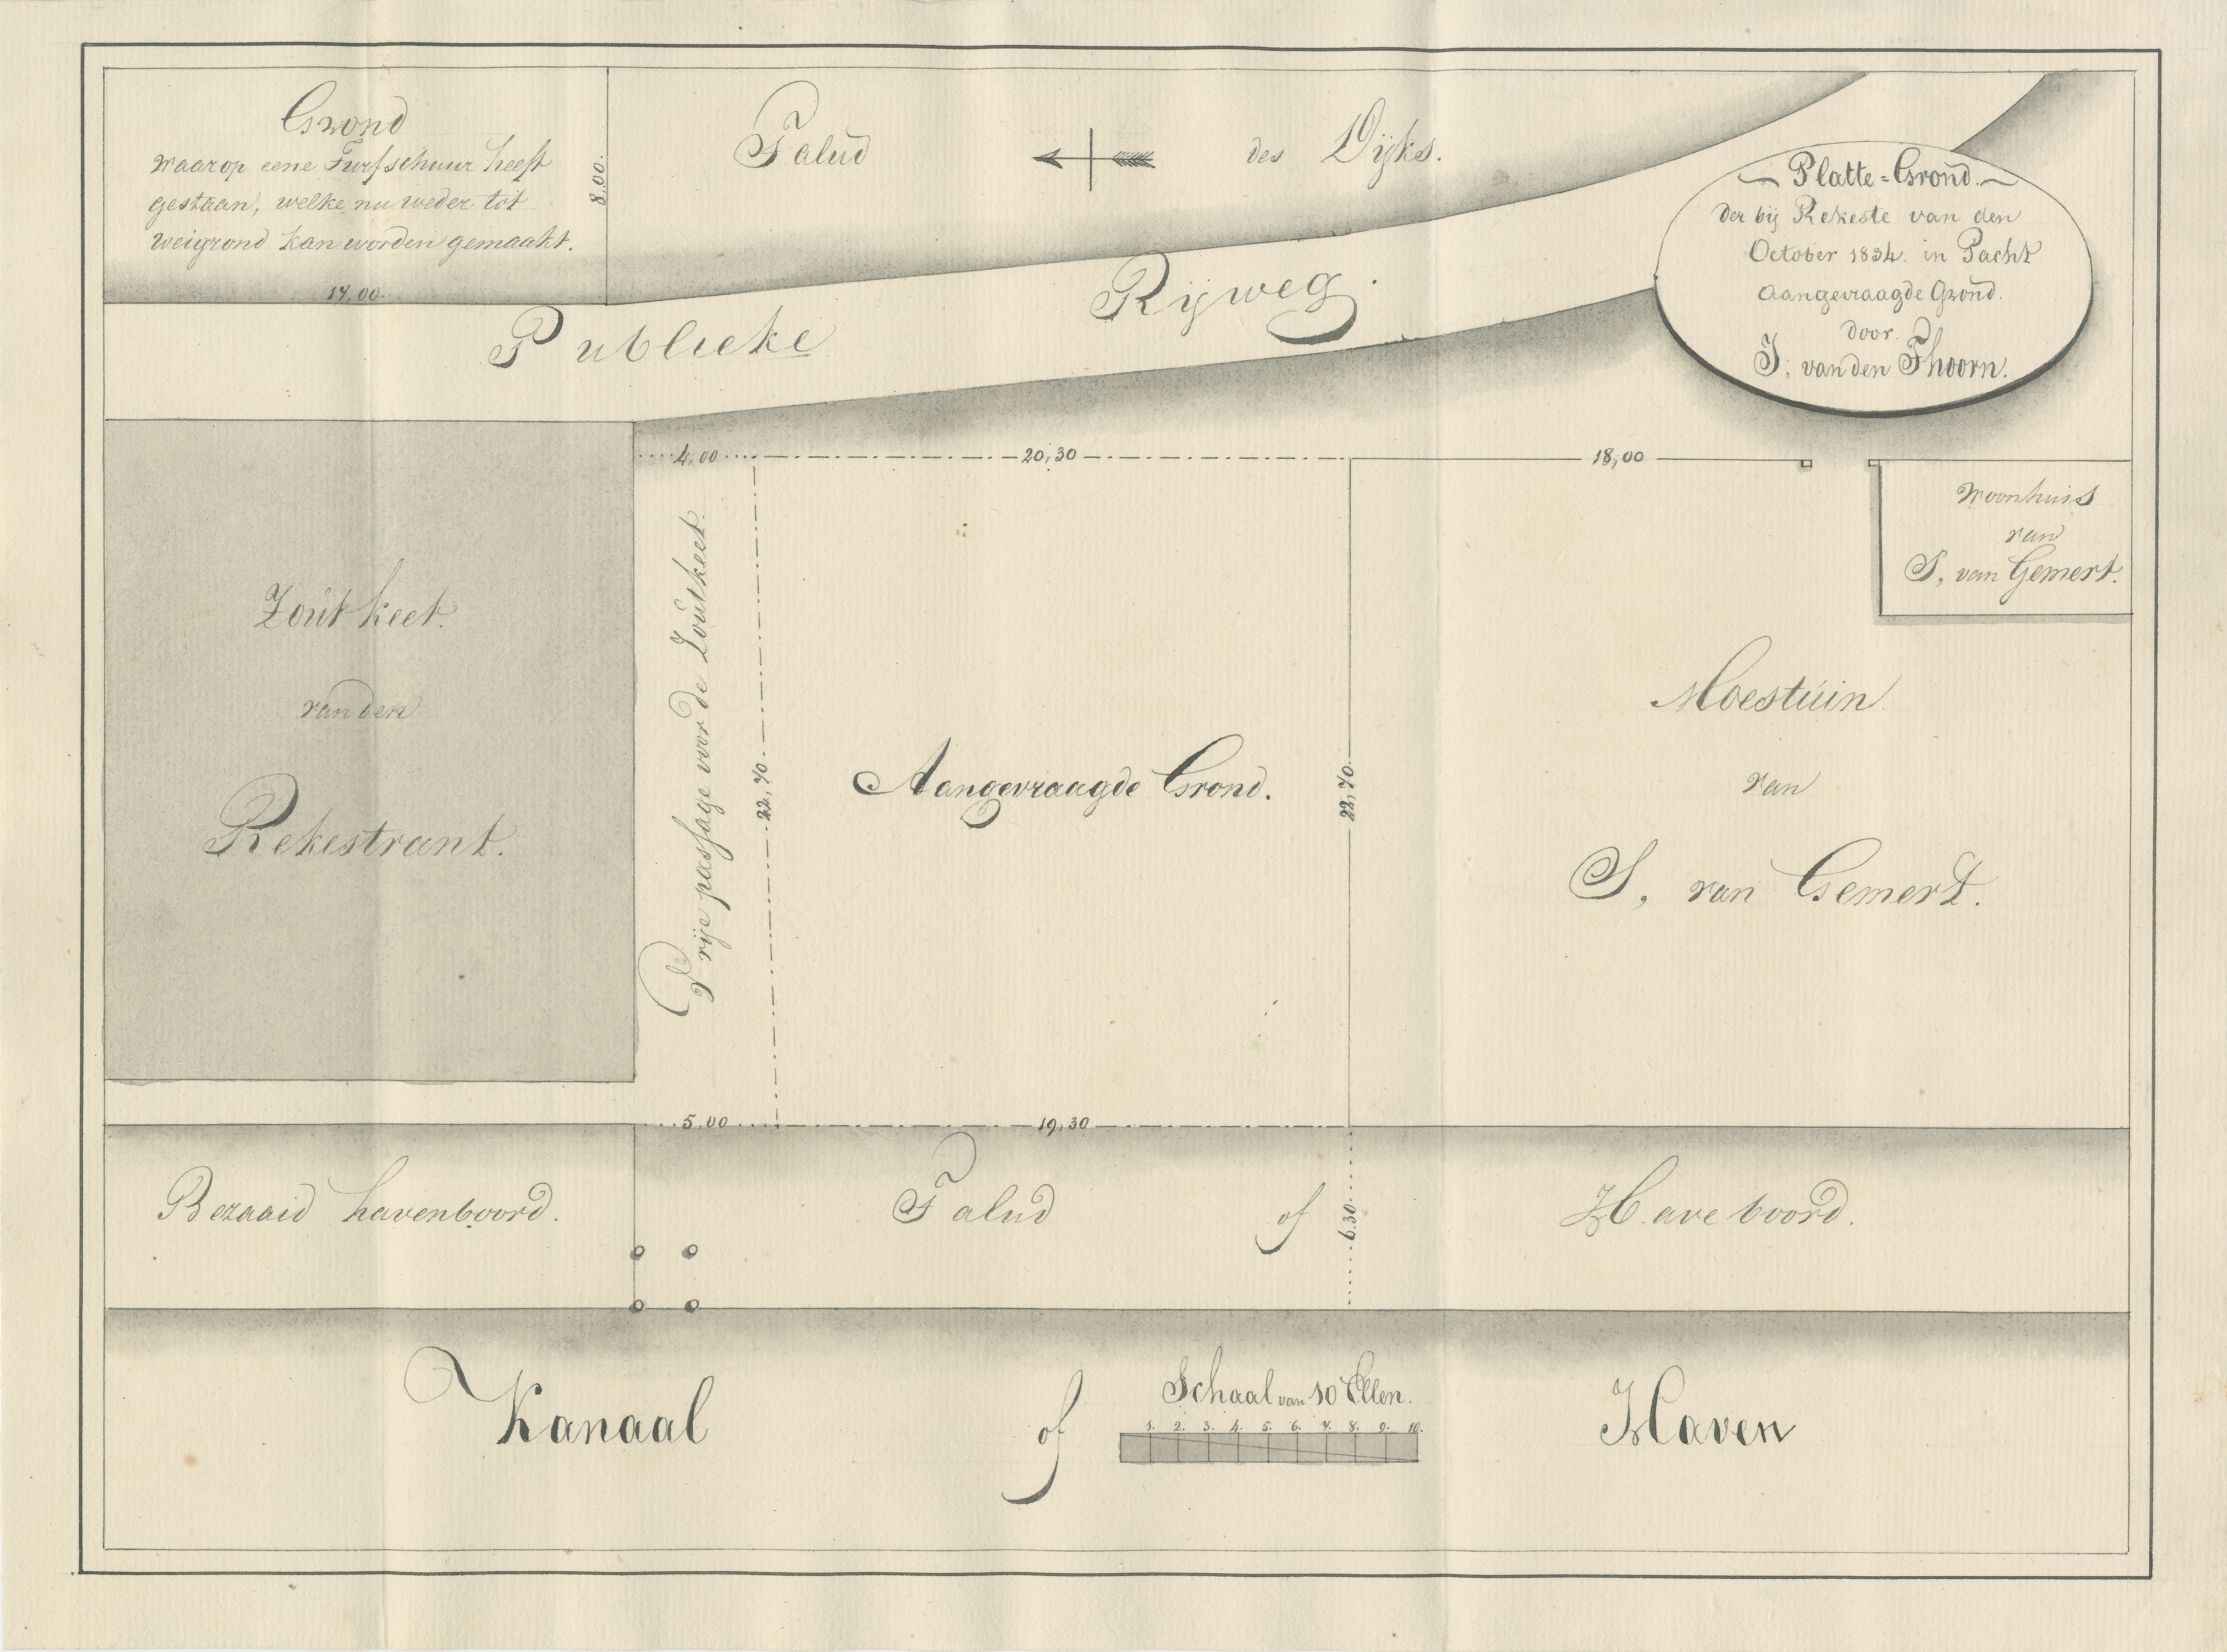 Grond
waarop eene Turfschuur heeft
gestaan, welke nu weder tot
weigrond kan worden gemaakt.
8.00.
14,00.
Talud des Dijks.
Platte=Grond.
der bij Rekeste van den
October 1834. in Pacht
aangevraagde Grond.
door
J. van den Thoorn.
Publieke Rijweg.
4,00
20,30
18,00
Woonhuis
van
S, van Gemert.
Zout keet.
van den
Rekestrant.
Vrije passage voor de Zoutkeet.
22,70
Aangevraagde Grond.
22,70
Moestuin
van
S, van Gemert.
5.00
19,30
Bezaaid havenboord.
Talud of Haveboord.
6.30
Kanaal of Haven
Schaal van 10 Ellen.
1. 2. 3. 4. 5. 6. 7. 8. 9. 10.